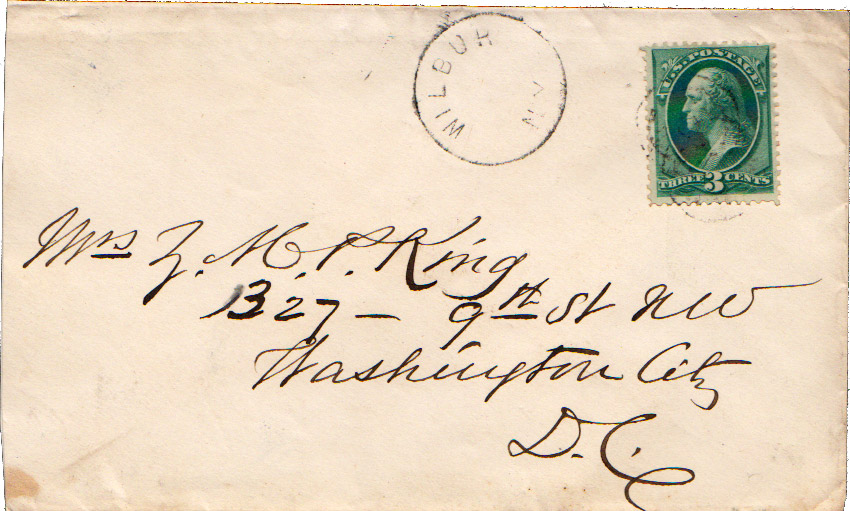 WILBUR
N.Y.
U.S. POSTAGE
THREE 3 CENTS
Mrs Z. M. P. King
1327 — 9th St NW
Washington City
D.C.